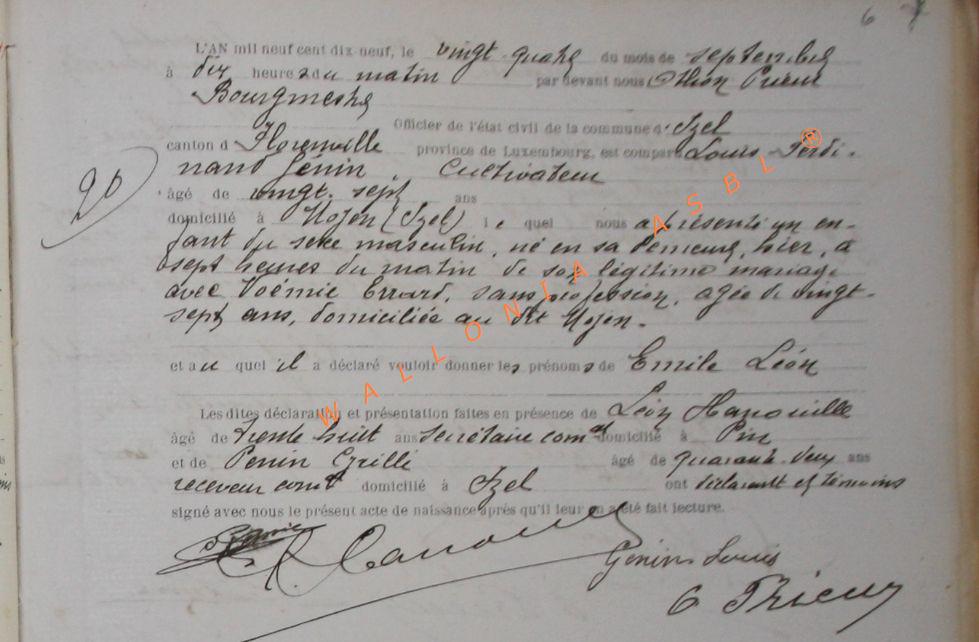 6
L'AN mil neuf cent dix-neuf, le vingt-quatre du mois de septembre
à dix heures du matin par devant nous Othon Prieur
Bourgmestre
Officier de l'état civil de la commune d'Izel
canton de Florenville province de Luxembourg, est comparu Louis-Ferdi-
nand Génin, Cultivateur
20
âgé de vingt-sept ans
domicilié à Moyen (Izel) le quel nous a présenté un en-
fant du sexe masculin, né en sa demeure, hier, à
sept heures du matin de son légitime mariage
avec Noémie Errard, sans profession, agée de vingt-
sept ans, domiciliée au dit Moyen.
et au quel il a déclaré vouloir donner les prénoms de Emile Léon
Les dites déclaration et présentation faites en présence de Léon
âgé de trente huit ans secrétaire comal domicilié à Pin
et de Perrin Cyrille âgé de quarante-deux ans
receveur comal domicilié à Izel ont déclarant et témoins
signé avec nous le présent acte de naissance après qu'il leur en a été fait lecture.
Génin Louis
O Prieur
WALLONIA ASBL ®